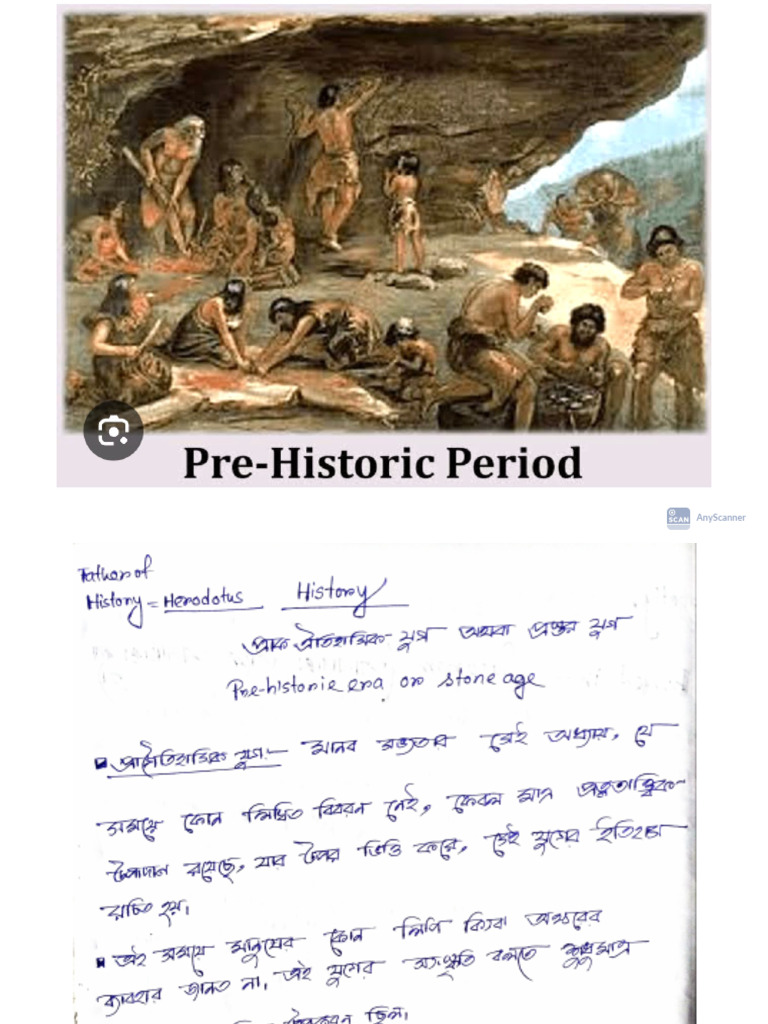 Pre-Historic Period
SCAN AnyScanner
Father of
History = Herodotus History
প্রাক ঐতিহাসিক যুগ অথবা প্রস্তর যুগ
Pre-historic era or stone age
প্রাগৈতিহাসিক যুগ:- মানব সভ্যতার সেই অধ্যায়, যে
সময়ে কোন লিখিত বিবরন নেই, কেবল মাত্র প্রত্নতাত্ত্বিক
উপাদান রয়েছে, যার উপর ভিত্তি করে, সেই যুগের ইতিহাস
রচিত হয়।
এই সময়ে মানুষের কোন লিপি কিংবা অক্ষরের
ব্যবহার জানত না। এই যুগের সংস্কৃতি বলতে শুধুমাত্র
ছিল।